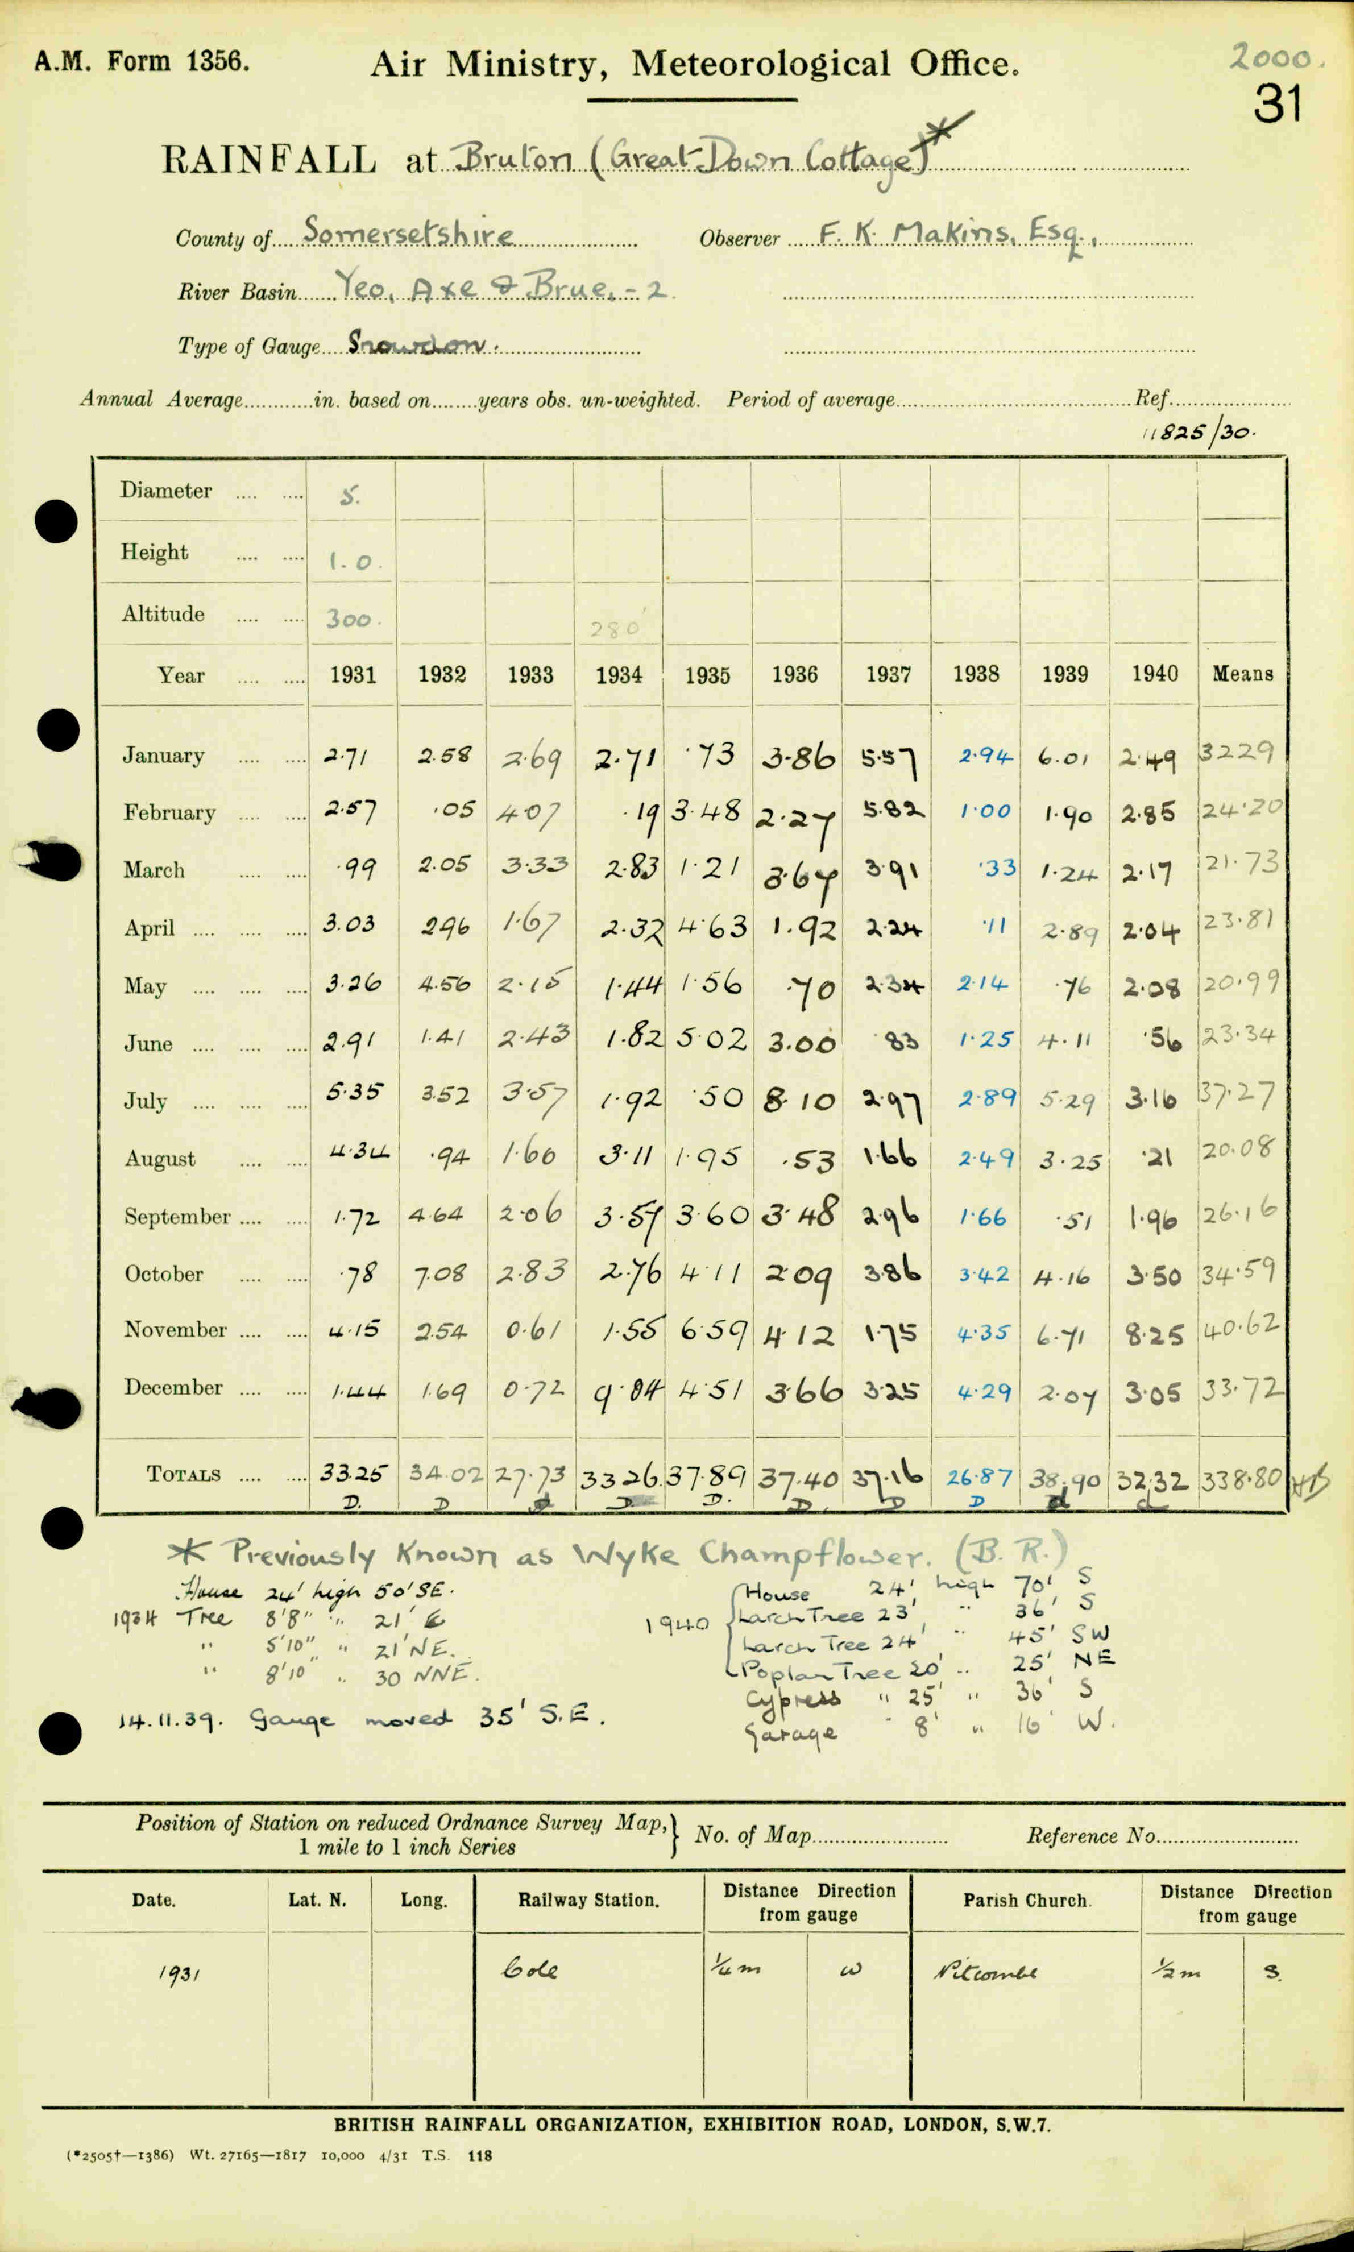 A.M. Form 1356.
Air Ministry, Meteorological Office.
2000.
31
RAINFALL at Bruton (Great Down Cottage)*
County of Somersetshire Observer F. K. Makins, Esq.,
River Basin Yeo, Axe & Brue, - 2.
Type of Gauge Snowdon.
Annual Average in. based on years obs. un-weighted. Period of average Ref.
11825/30.
Diameter 5.
Height 1.0.
Altitude 300. 280'
Year 1931 1932 1933 1934 1935 1936 1937 1938 1939 1940 Means
January 2.71 2.58 2.69 2.71 .73 3.86 5.57 2.94 6.01 2.49 32.29
February 2.57 .05 4.07 .19 3.48 2.27 5.82 1.00 1.90 2.85 24.20
March .99 2.05 3.33 2.83 1.21 3.67 3.91 .33 1.24 2.17 21.73
April 3.03 2.96 1.67 2.32 4.63 1.92 2.24 .11 2.89 2.04 23.81
May 3.26 4.56 2.15 1.44 1.56 .70 2.34 2.14 .76 2.08 20.99
June 2.91 1.41 2.43 1.82 5.02 3.00 .83 1.25 4.11 .56 23.34
July 5.35 3.52 3.57 1.92 .50 8.10 2.97 2.89 5.29 3.16 37.27
August 4.34 .94 1.60 3.11 1.95 .53 1.66 2.49 3.25 .21 20.08
September 1.72 4.64 2.06 3.57 3.60 3.48 2.96 1.66 .51 1.96 26.16
October .78 7.08 2.83 2.76 4.11 2.09 3.86 3.42 4.16 3.50 34.59
November 4.15 2.54 0.61 1.55 6.59 4.12 1.75 4.35 6.71 8.25 40.62
December 1.44 1.69 0.72 9.04 4.51 3.66 3.25 4.29 2.07 3.05 33.72
TOTALS 33.25 34.02 27.73 33.26 37.89 37.40 37.16 26.87 38.90 32.32 338.80
D. D d D D. D. D D d d
* Previously Known as Wyke Champflower. (B. R.)
House 24' high 50' SE.
1934 Tree 8'8" " 21' E
" 5'10" " 21' NE.
" 8'10 " 30 NNE.
14.11.39. Gauge moved 35' S.E.
House 24' high 70' S
1940 Larch Tree 23' " 36' S
Larch Tree 24' " 45' SW
Poplar Tree 20' " 25' NE
Cypress " 25' " 36' S
Garage " 8' " 16' W.
Position of Station on reduced Ordnance Survey Map, 1 mile to 1 inch Series } No. of Map Reference No.
Date. Lat. N. Long. Railway Station. Distance Direction from gauge Parish Church. Distance Direction from gauge
1931 Cole ¼ m W Pitcombe ½ m S.
BRITISH RAINFALL ORGANIZATION, EXHIBITION ROAD, LONDON, S.W.7.
(*2505†—1386) Wt. 27165—1817 10,000 4/31 T.S. 118